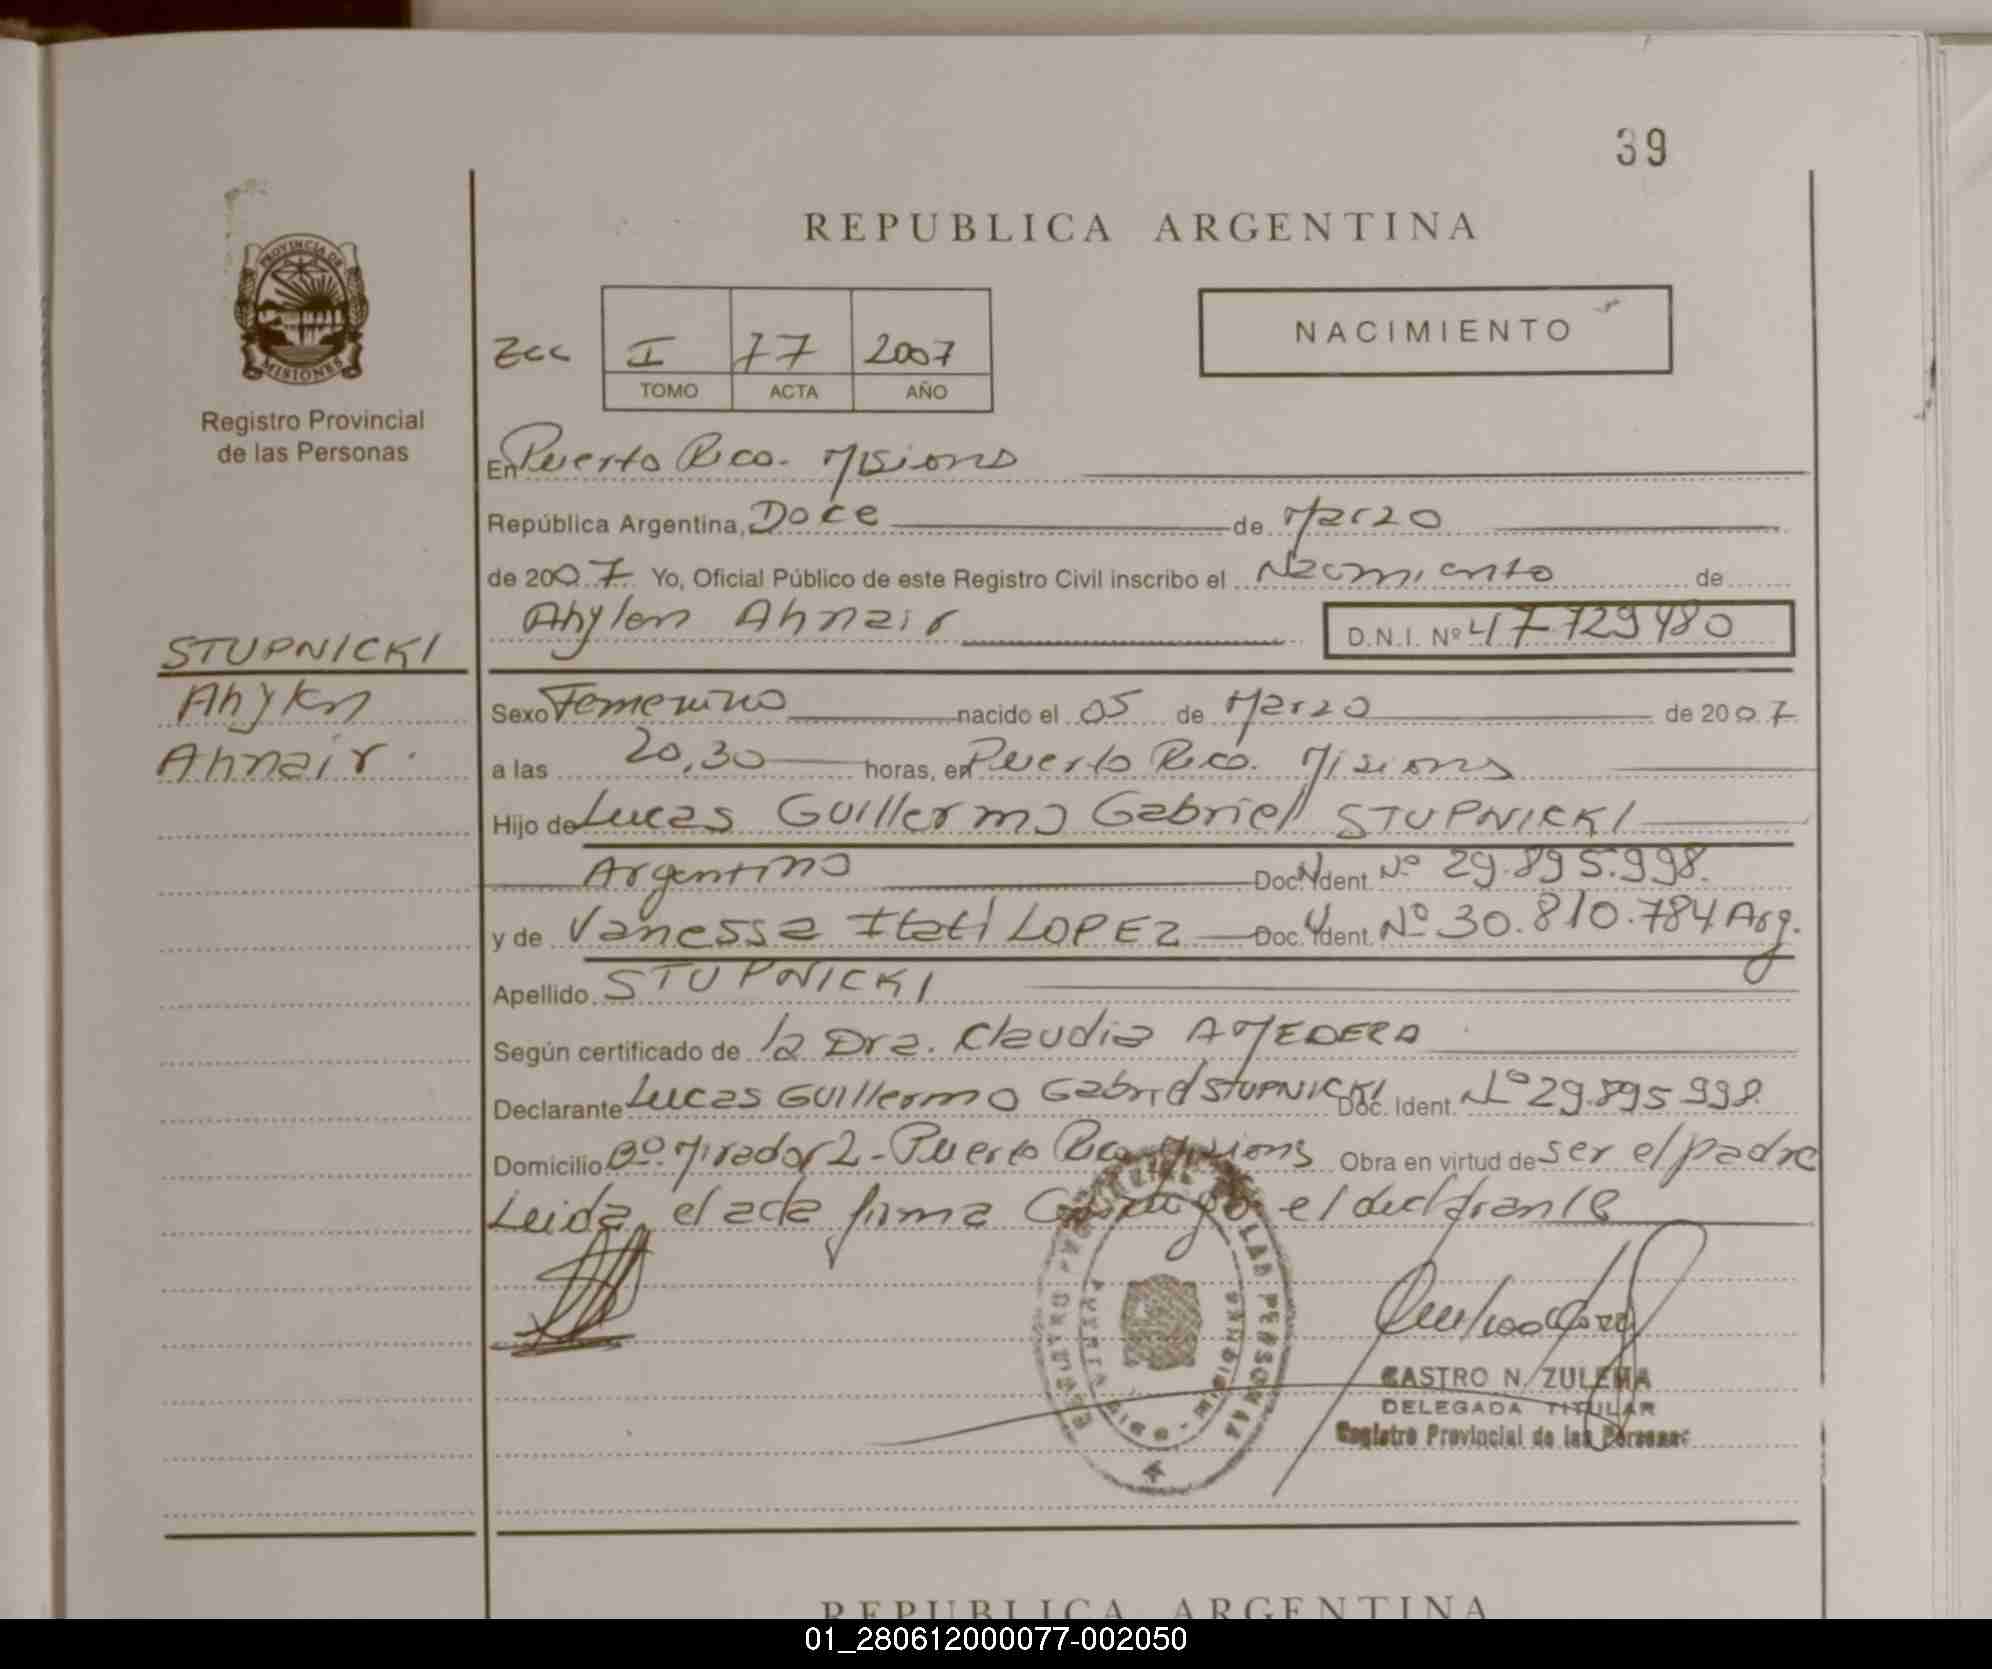 39
REPUBLICA ARGENTINA
PROVINCIA DE
MISIONES
Registro Provincial
de las Personas
I 77 2007
TOMO ACTA AÑO
NACIMIENTO
En Puerto Rico. Misiones
República Argentina, Doce de Marzo
de 2007 Yo, Oficial Público de este Registro Civil inscribo el Nacimiento de
Ahylen Ahnair D.N.I. Nº 47729480
STUPNICKI
Ahylen
Ahnair.
Sexo Femenino nacido el 05 de Marzo de 2007
a las 20,30 horas, en Puerto Rico. Misiones
Hijo de Lucas Guillermo Gabriel STUPNICKI
Argentino Doc. N. Ident. Nº 29.895.998.
y de Vanessa Itatí LOPEZ Doc. Ident. Nº 30.810.784 Arg.
Apellido STUPNICKI
Según certificado de la Dra. Claudia
Declarante Lucas Guillermo Gabriel STUPNICKI Doc. Ident. Nº 29.895.998
Domicilio Bº. Mirador 2 - Puerto Rico Misiones Obra en virtud de ser el padre
Leida el acta firma Conmigo el declarante
REGISTRO PROVINCIAL DE LAS PERSONAS
CASTRO N. ZULEMA
DELEGADA TITULAR
Registro Provincial de las Personas
REPUBLICA ARGENTINA
01_280612000077-002050